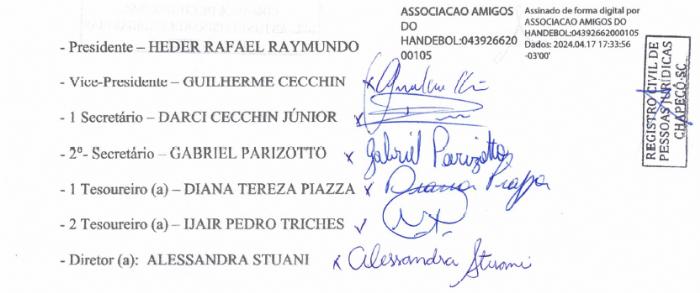 ASSOCIACAO AMIGOS
DO
HANDEBOL:043926620
00105
Assinado de forma digital por
ASSOCIACAO AMIGOS DO
HANDEBOL:04392662000105
Dados: 2024.04.17 17:33:56
-03'00'
- Presidente – HEDER RAFAEL RAYMUNDO
- Vice-Presidente – GUILHERME CECCHIN
- 1 Secretário – DARCI CECCHIN JÚNIOR
- 2º- Secretário – GABRIEL PARIZOTTO x Gabriel Parizotto
- 1 Tesoureiro (a) – DIANA TEREZA PIAZZA x Diana Piazza
- 2 Tesoureiro (a) – IJAIR PEDRO TRICHES
- Diretor (a): ALESSANDRA STUANI x Alessandra Stuani
REGISTRO CIVIL DE
PESSOAS JURÍDICAS
CHAPECÓ-SC